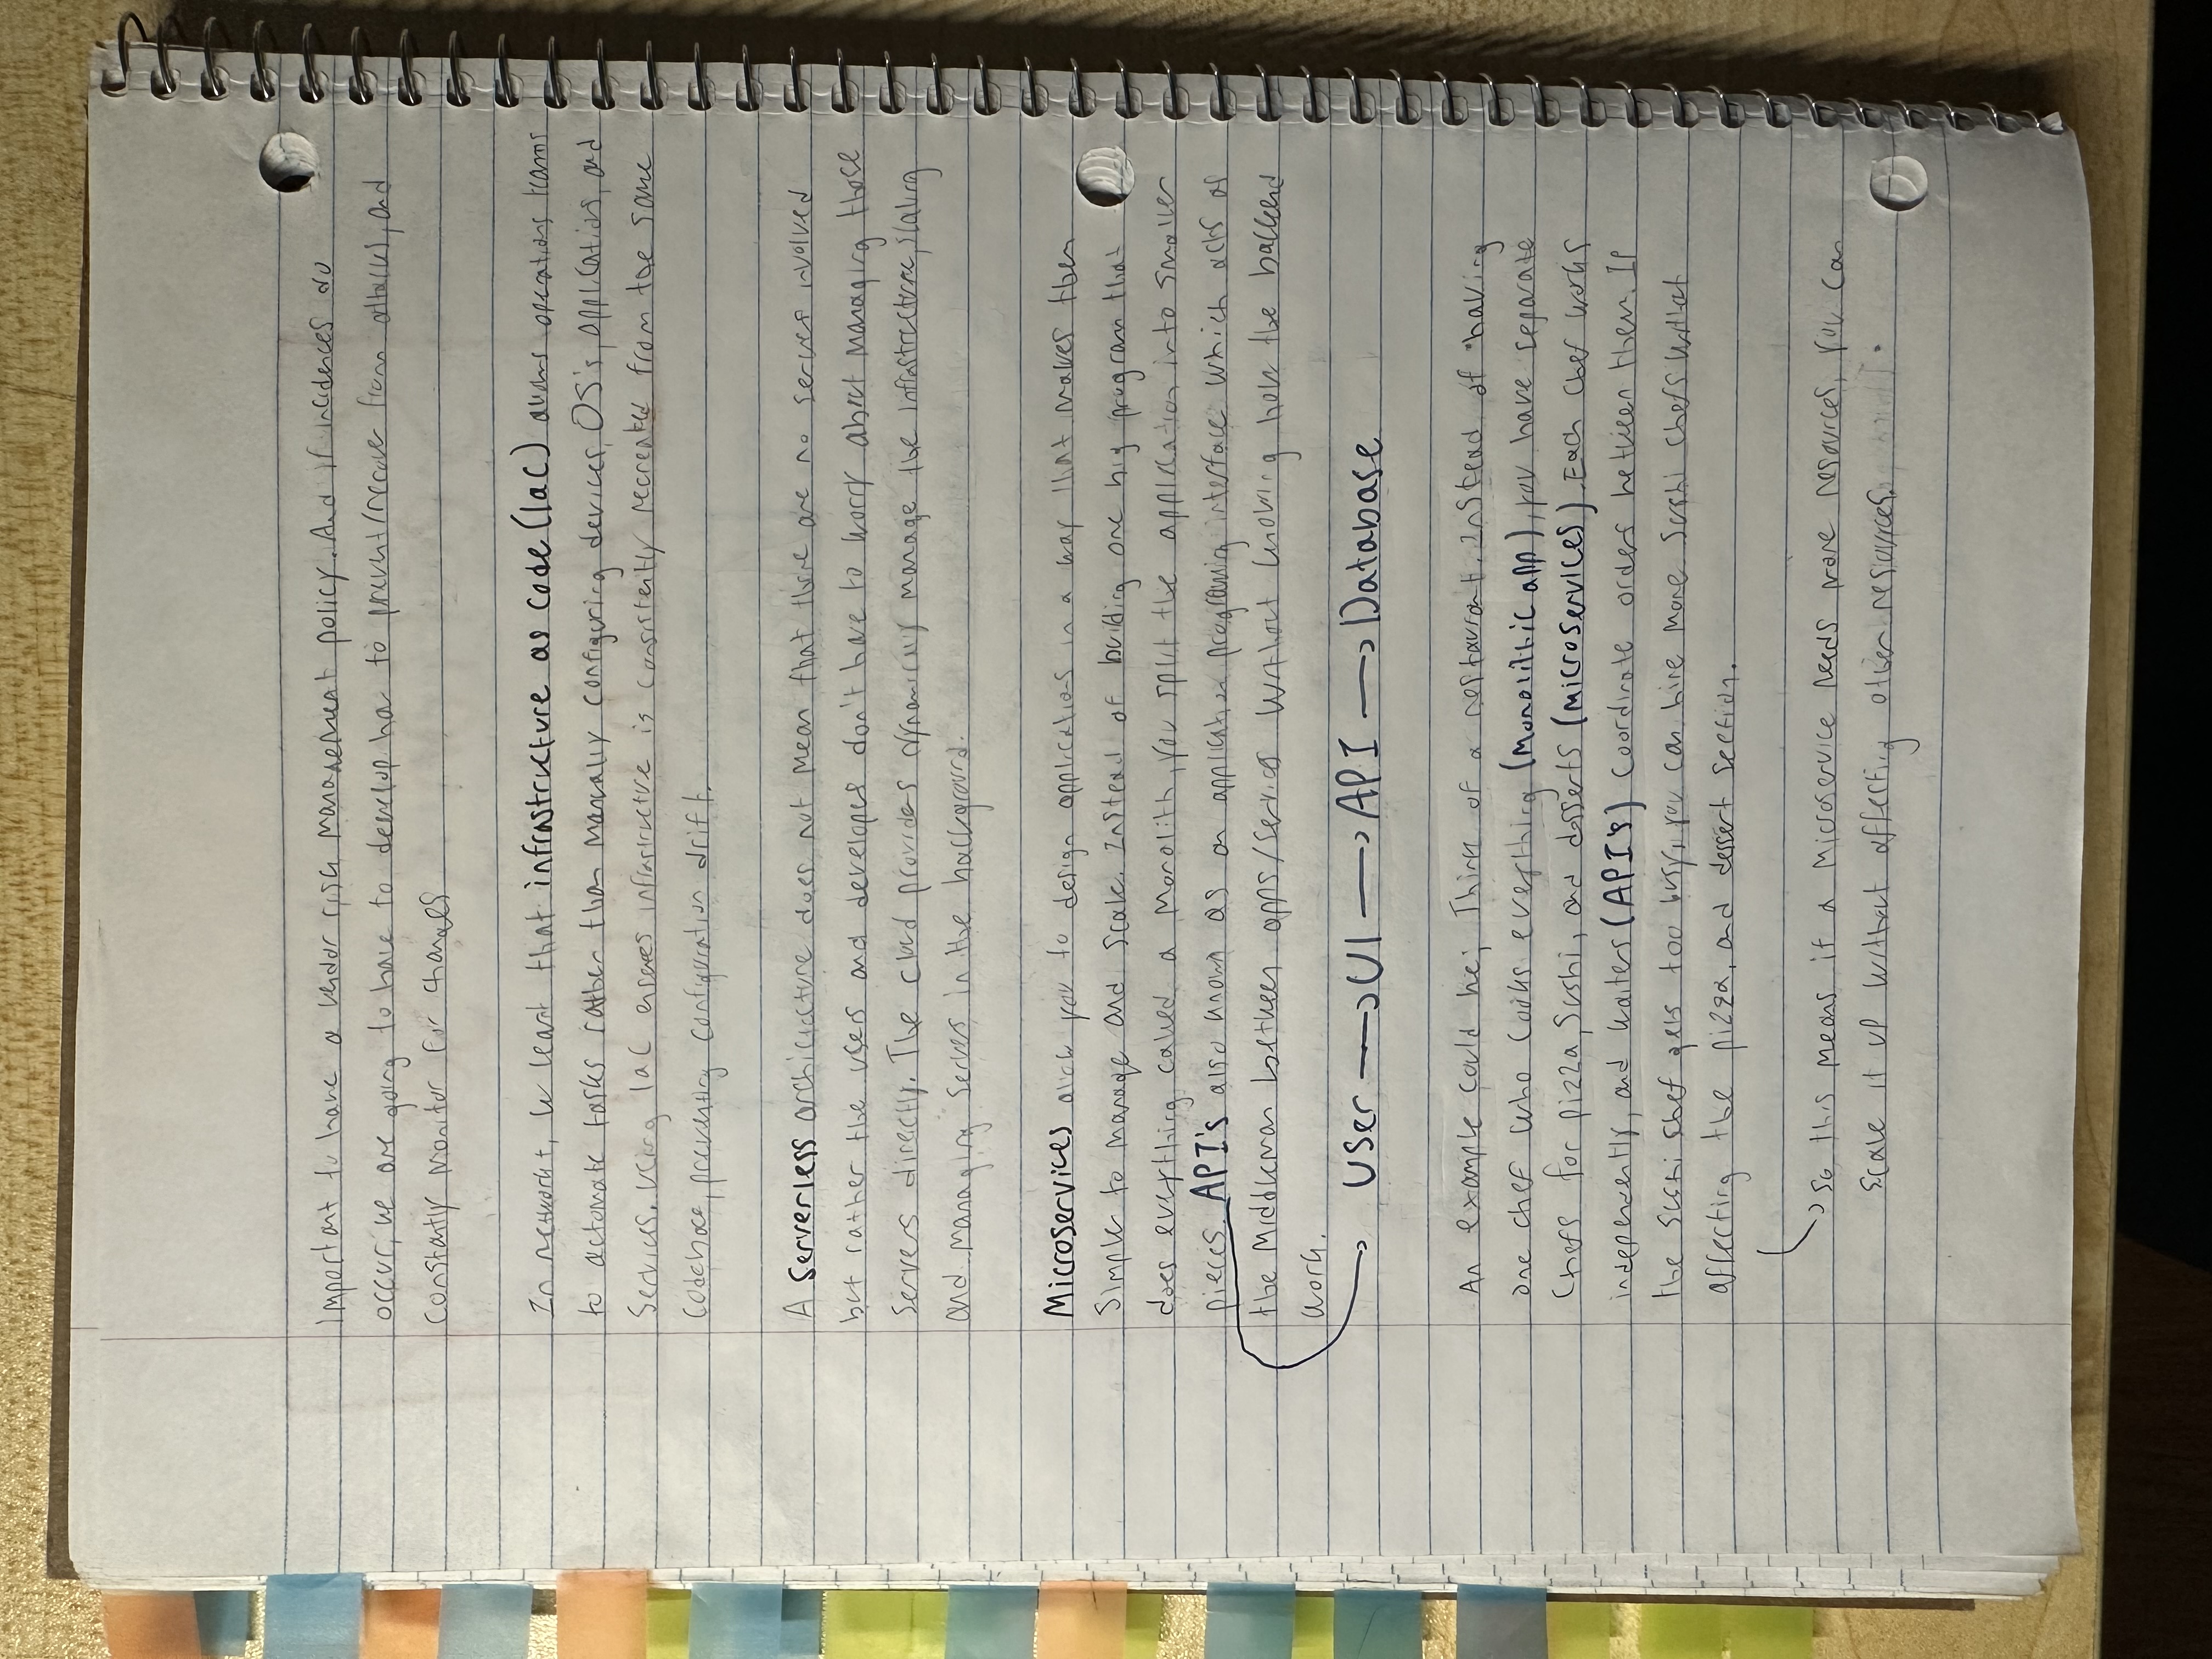 Important to have a vendor risk management policy. And if incidences do
occur, we are going to have to develop how to prevent/recover from attacks, and
constantly monitor for changes
In network+, we learnt that infrastructure as code (IaC) allows operations teams
to automate tasks rather than manually configuring devices, OS's, applications, and
services. Using IaC ensures infrastructure is consistently recreated from the same
codebase, preventing configuration drift.
A Serverless architecture does not mean that there are no servers involved
but rather the users and developers don't have to worry about managing those
servers directly. The cloud providers dynamically manage the infrastructure, scaling
and managing servers in the background.
Microservices allow you to design applications in a way that makes them
simple to manage and scale. Instead of building one big program that
does everything called a monolith, you split the application into smaller
pieces. API's also known as an application programing interface which acts as
the middleman between apps/services without knowing how the backend
work.
User → UI → API → Database
An example could be; Think of a restaurant. Instead of having
one chef who cooks everything (Monolithic app), you have separate
chefs for pizza, sushi, and desserts (microservices). Each chef works
independently, and waiters (API's) coordinate orders between them. If
the sushi chef gets too busy, you can hire more sushi chefs without
affecting the pizza, and dessert section.
→ So this means if a microservice needs more resources, you can
scale it up without affecting other resources.